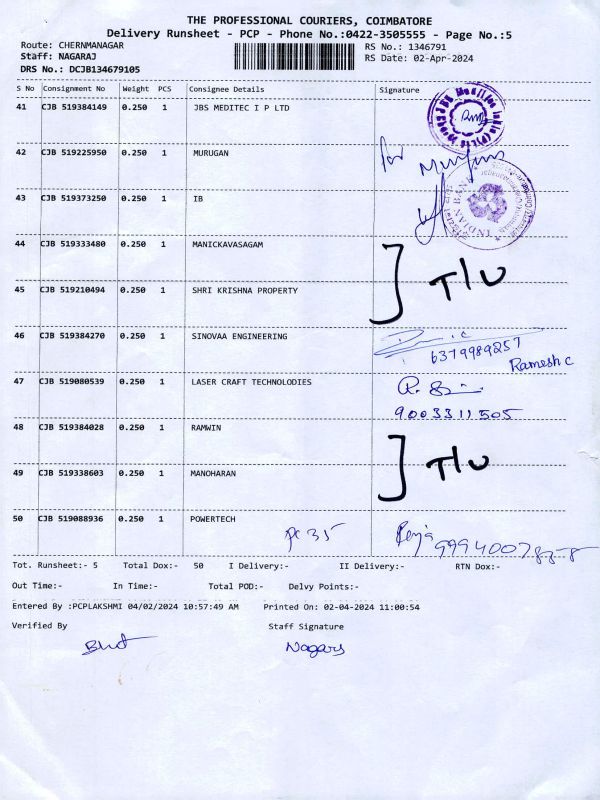 THE PROFESSIONAL COURIERS, COIMBATORE
Delivery Runsheet - PCP - Phone No.:0422-3505555 - Page No.:5
Route: CHERNMANAGAR
RS No.: 1346791
Staff: NAGARAJ
RS Date: 02-Apr-2024
DRS No.: DCJB134679105
S No Consignment No Weight PCS Consignee Details Signature
41 CJB 519384149 0.250 1 JBS MEDITEC I P LTD
42 CJB 519225950 0.250 1 MURUGAN
43 CJB 519373250 0.250 1 IB
INDIAN BANK
44 CJB 519333480 0.250 1 MANICKAVASAGAM
T/U
45 CJB 519210494 0.250 1 SHRI KRISHNA PROPERTY
46 CJB 519384270 0.250 1 SINOVAA ENGINEERING
6379989257
Ramesh C
47 CJB 519080539 0.250 1 LASER CRAFT TECHNOLODIES
9003311505
48 CJB 519384028 0.250 1 RAMWIN
T/U
49 CJB 519338603 0.250 1 MANOHARAN
50 CJB 519088936 0.250 1 POWERTECH
Tot. Runsheet:- 5 Total Dox:- 50 I Delivery:- II Delivery:- RTN Dox:-
Out Time:- In Time:- Total POD:- Delvy Points:-
Entered By :PCPLAKSHMI 04/02/2024 10:57:49 AM Printed On: 02-04-2024 11:00:54
Verified By Staff Signature
Nagaraj